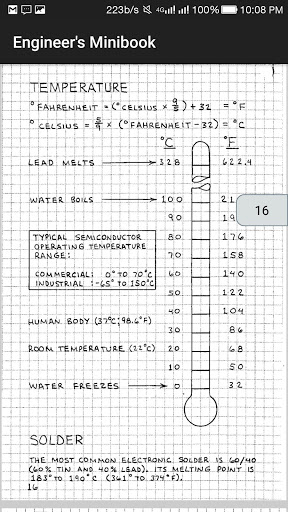 223b/s 4G 100% 10:08 PM
Engineer's Minibook
TEMPERATURE
°FAHRENHEIT = (°CELSIUS × 9/5) + 32 = °F
°CELSIUS = 5/9 × (°FAHRENHEIT - 32) = °C
°C °F
LEAD MELTS 328 622.4
WATER BOILS 100 21
16
90 19
TYPICAL SEMICONDUCTOR 80 176
OPERATING TEMPERATURE
RANGE: 70 158
COMMERCIAL: 0° TO 70°C 60 140
INDUSTRIAL: -65° TO 150°C
50 122
40 104
HUMAN BODY (37°C; 98.6°F)
30 86
ROOM TEMPERATURE (22°C) 20 68
10 50
WATER FREEZES 0 32
SOLDER
THE MOST COMMON ELECTRONIC SOLDER IS 60/40
(60% TIN AND 40% LEAD). ITS MELTING POINT IS
183° TO 190°C (361° TO 374°F).
16